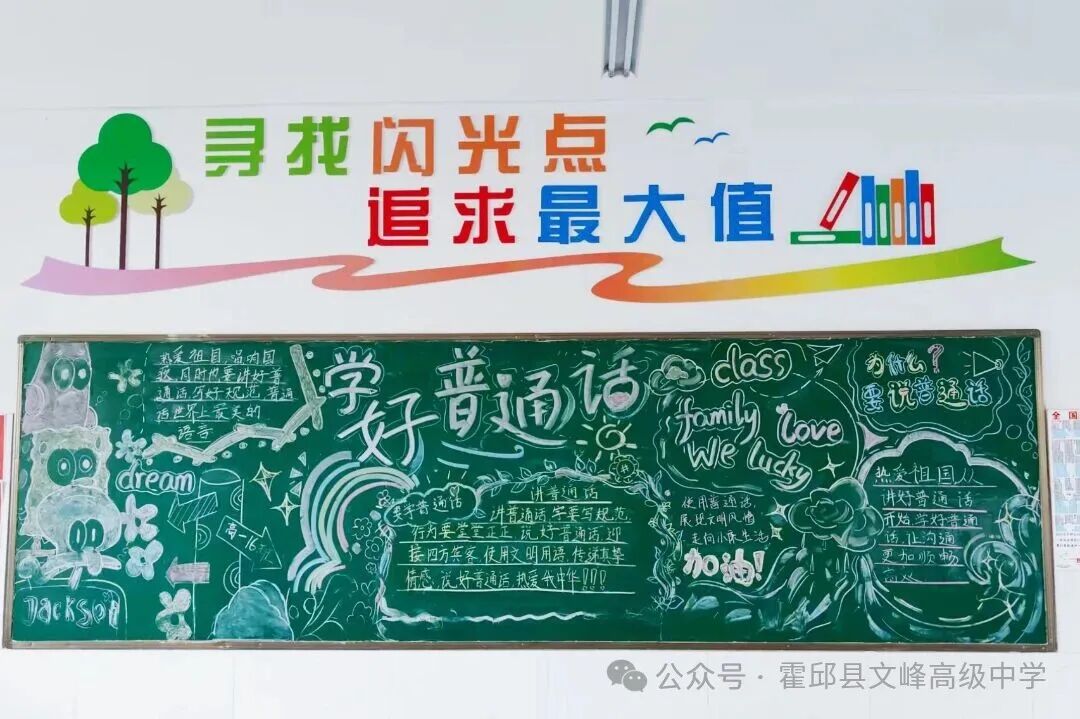 寻找闪光点
追求最大值
热爱祖国,
同时也要讲好普
通话,写好规范,普通
话世界上最美的
语言
学好普通话
dream
高一
Jackson
要学普通话
讲普通话
讲普通话,学要写规范
行为要堂堂正正,说好普通话,迎
接四方宾客,使用文明用语,传递真挚
情感,说好普通话,热爱我中华!!!
class
family
love
We
lucky
使用普通话,
展现文明风情
走向小康生活
加油!
为什么?
要说普通话
热爱祖国从
讲好普通话
开始,学好普通
话,让沟通
更加顺畅
公众号·霍邱县文峰高级中学